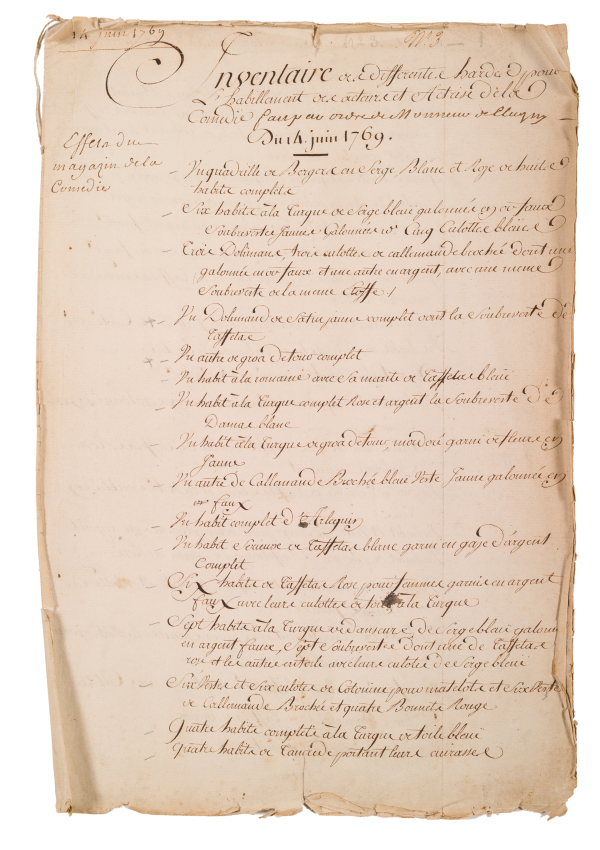 14 juin 1769
N°3
Inventaire des differentes hardes pour
L'habillement des acteurs et Actrises de la
Comedie fait par ordre de Monsieur de Clugny
Du 14 juin 1769.
Effets du
magazin de la
Comedie
Un quadrille de Bergers en Serge Blanc et Roze de huit
habits complets
Six habits à la Turque de Serge bleüe galonnés en or faux
Soubrevestes jaunes Galonnées or Cinq Culottes bleues
Trois Dolimans, trois culottes de callemande brochée dont un
galonné en or faux et une autre en argent, avec une meme
Soubreveste de la meme Etoffe
Un Dolimand de Satin jaune complet dont la Soubreveste de
Taffetas
Un autre de gros de tour complet
Un habit à la romaine avec sa mante de Taffetas bleüe
Un habit à la Turque complet Rose et argent la Soubreveste de
Damas blanc
Un habit à la Turque de gros de tour, mordoré garni de fleurs en
Jaune
Un autre de Callemande Brochée bleüe Verte Jaune galonnée en
or faux
Un habit complet d'Arlequin
Un habit Serieux de Taffetas blanc garni en gaze d'argent
Complet
Six habits de Taffetas Rose pour femmes garnis en argent
faux avec leurs culottes de toile à la Turque
Sept habits à la Turque de danseurs de Serge bleüe galonnés
en argent faux, Sept Soubrevestes dont une de Taffetas
rose et les autres en toile avec leurs culotes de Serge bleüe
Six Vestes et Six culotes de Cotonine pour matelots et Six Vestes
de Callemande Brochée et quatre Bonnets Rouge
Quatre habits complets à la Turque de toile bleüe
Quatre habits de Tancrede portant leurs cuirasses